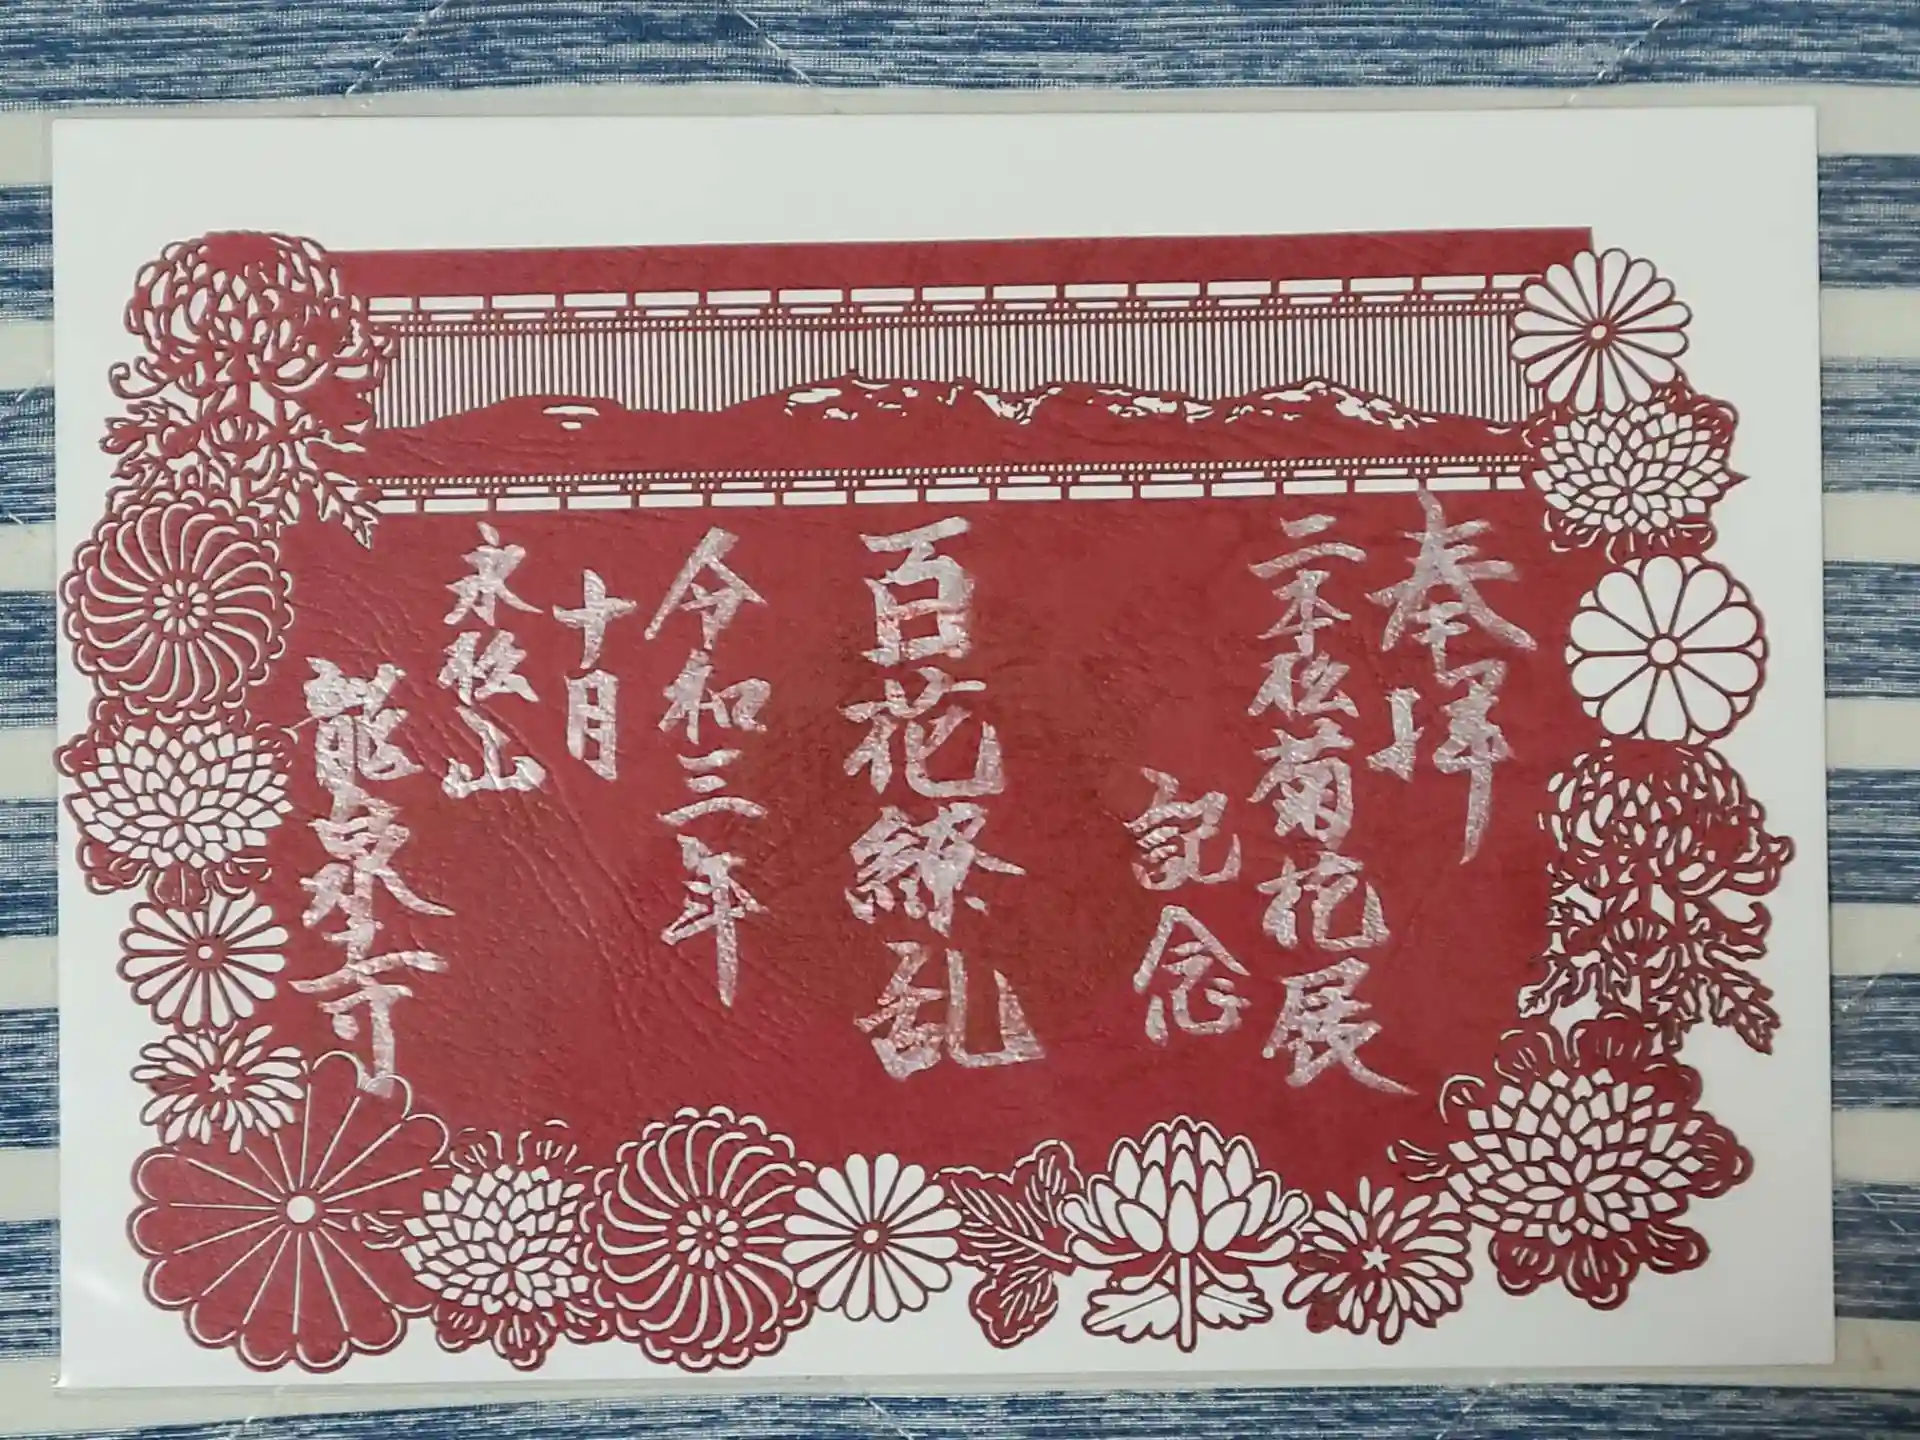 奉拝
二本松菊花展
記念
百花繚乱
令和三年
十月
永松山
龍泉寺